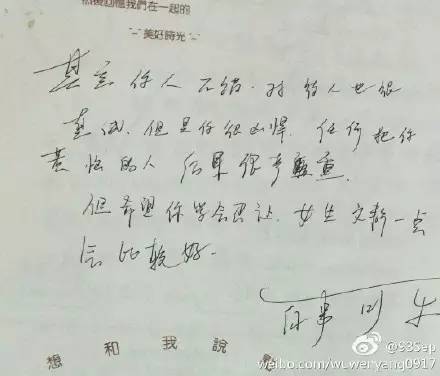 然後回憶我們在一起的
~美好時光~
其实你人不错.对待人也很
真诚.但是你很凶悍.任何把你
惹恼的人 后果很严重.
但希望你学会忍让.女生文静一点
会比较好.
想 和 我 說
@93Sep